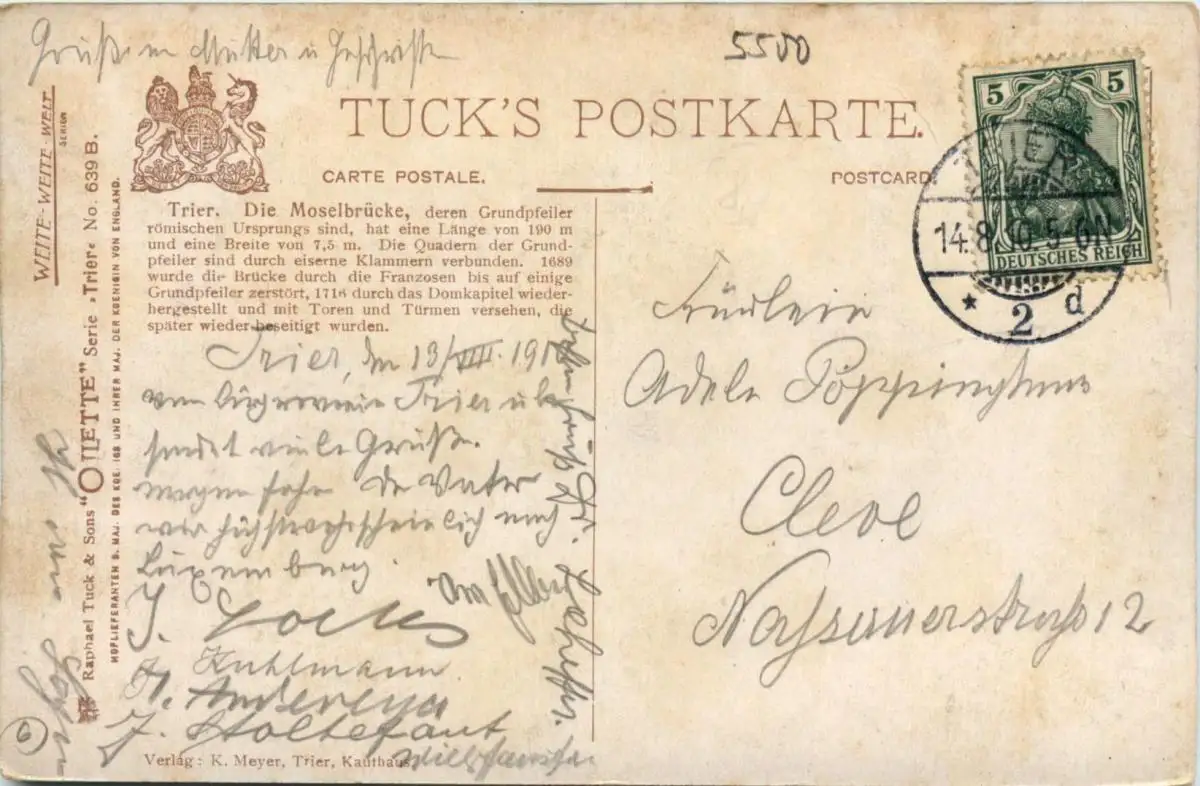 Gruß an Mutter u Geschwister
5500
TUCK'S POSTKARTE.
CARTE POSTALE.
POSTCARD
5 5
DEUTSCHES REICH
TRIER
14.8. 5-6N
* 2 d
Trier. Die Moselbrücke, deren Grundpfeiler
römischen Ursprungs sind, hat eine Länge von 190 m
und eine Breite von 7,5 m. Die Quadern der Grund-
pfeiler sind durch eiserne Klammern verbunden. 1689
wurde die Brücke durch die Franzosen bis auf einige
Grundpfeiler zerstört, 1716 durch das Domkapitel wieder-
hergestellt und mit Toren und Türmen versehen, die
später wieder beseitigt wurden.
Trier, den 13/VIII. 191
vom Trier
sendet viele Grüße.
morgen De Vater
wir höchstwahrscheinlich nach
Luxemburg.
J.
H. Kuhlmann
J. Stoltefaut
Fräulein
Adele Poppinghaus
Cleve
Nassauerstraße 12
WEITE-WEITE-WELT
SERIEN
Raphael Tuck & Sons "OILETTE" Serie »Trier« No. 639 B.
HOFLIEFERANTEN S. MAJ. DES KOE. IGS UND IHRER MAJ. DER KOENIGIN VON ENGLAND.
6
Verlag: K. Meyer, Trier, Kaufhaus